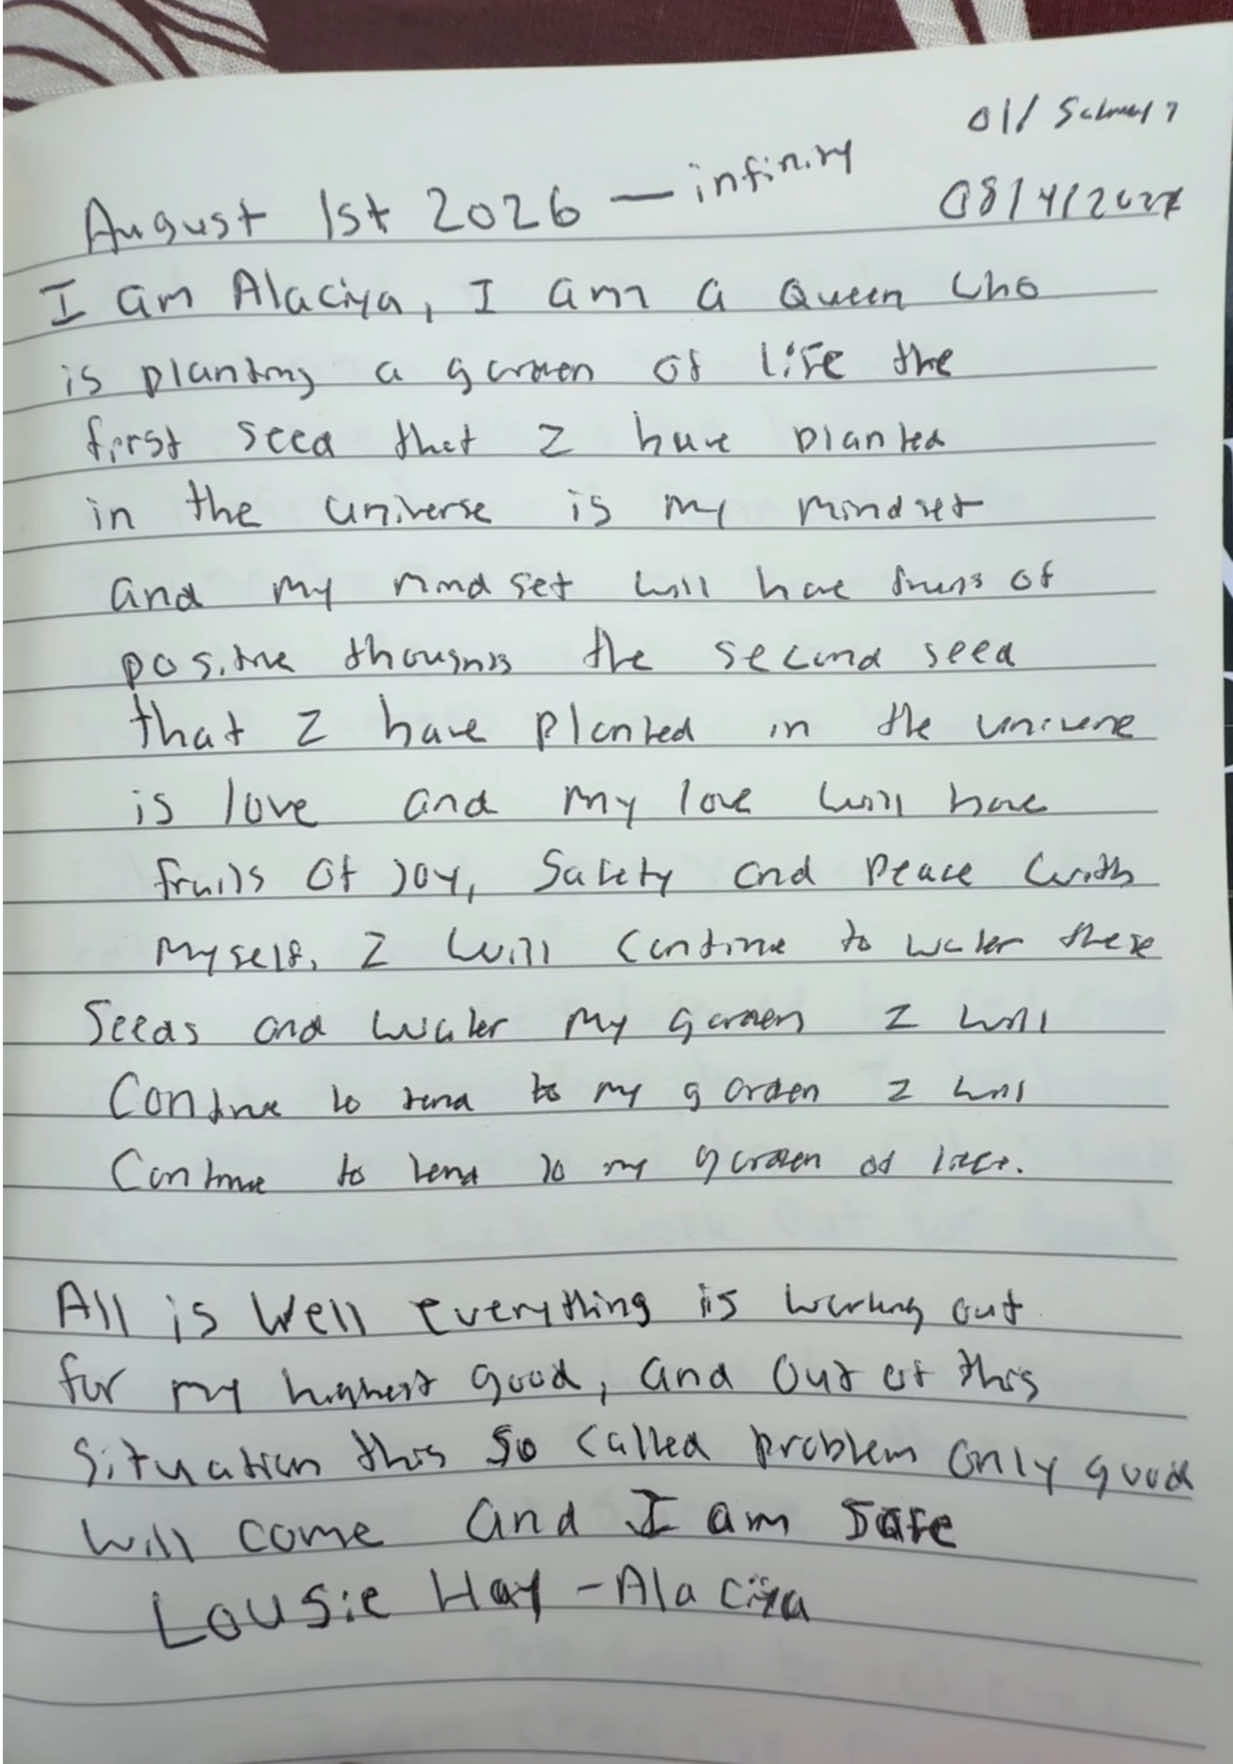 August 1st 2026 — infinity
08/4/2027
I am Alaciya, I am a Queen who
is planting a garden of life the
first seed that I have planted
in the universe is my mindset
and my mindset will have fruits of
positive thoughts the second seed
that I have planted in the universe
is love and my love will have
fruits of joy, Safety and Peace with
myself. I will continue to water these
Seeds and water my garden I will
Continue to tend to my garden I will
Continue to tend to my garden of life.
All is Well everything is working out
for my highest good, and out of this
Situation this so called problem only good
will come and I am Safe
Lousie Hay - Alaciya